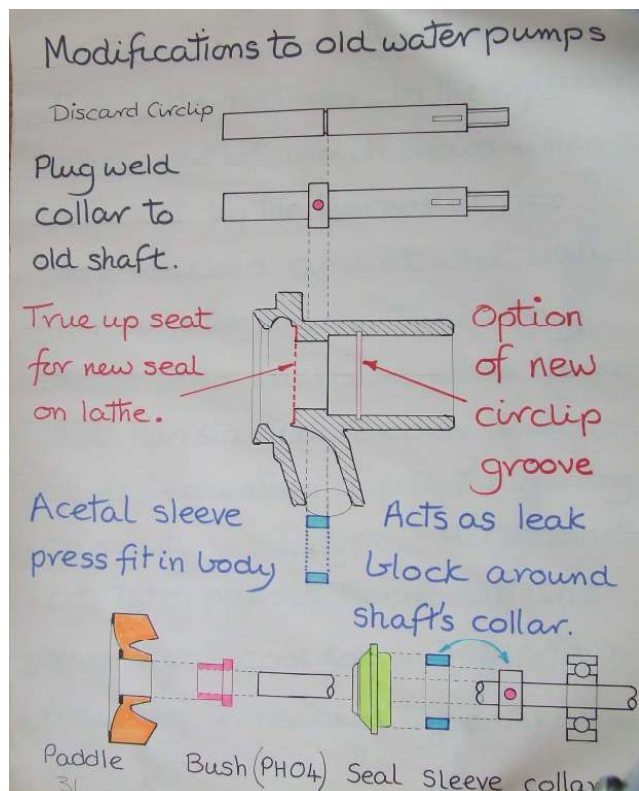 Modifications to old water pumps
Discard Circlip
Plug weld
collar to
old shaft.
True up seat
for new seal
on lathe.
Option
of new
circlip
groove
Acetal sleeve
press fit in body
Acts as leak
block around
shaft's collar.
Paddle
Bush (PH04)
Seal
Sleeve
collar
31